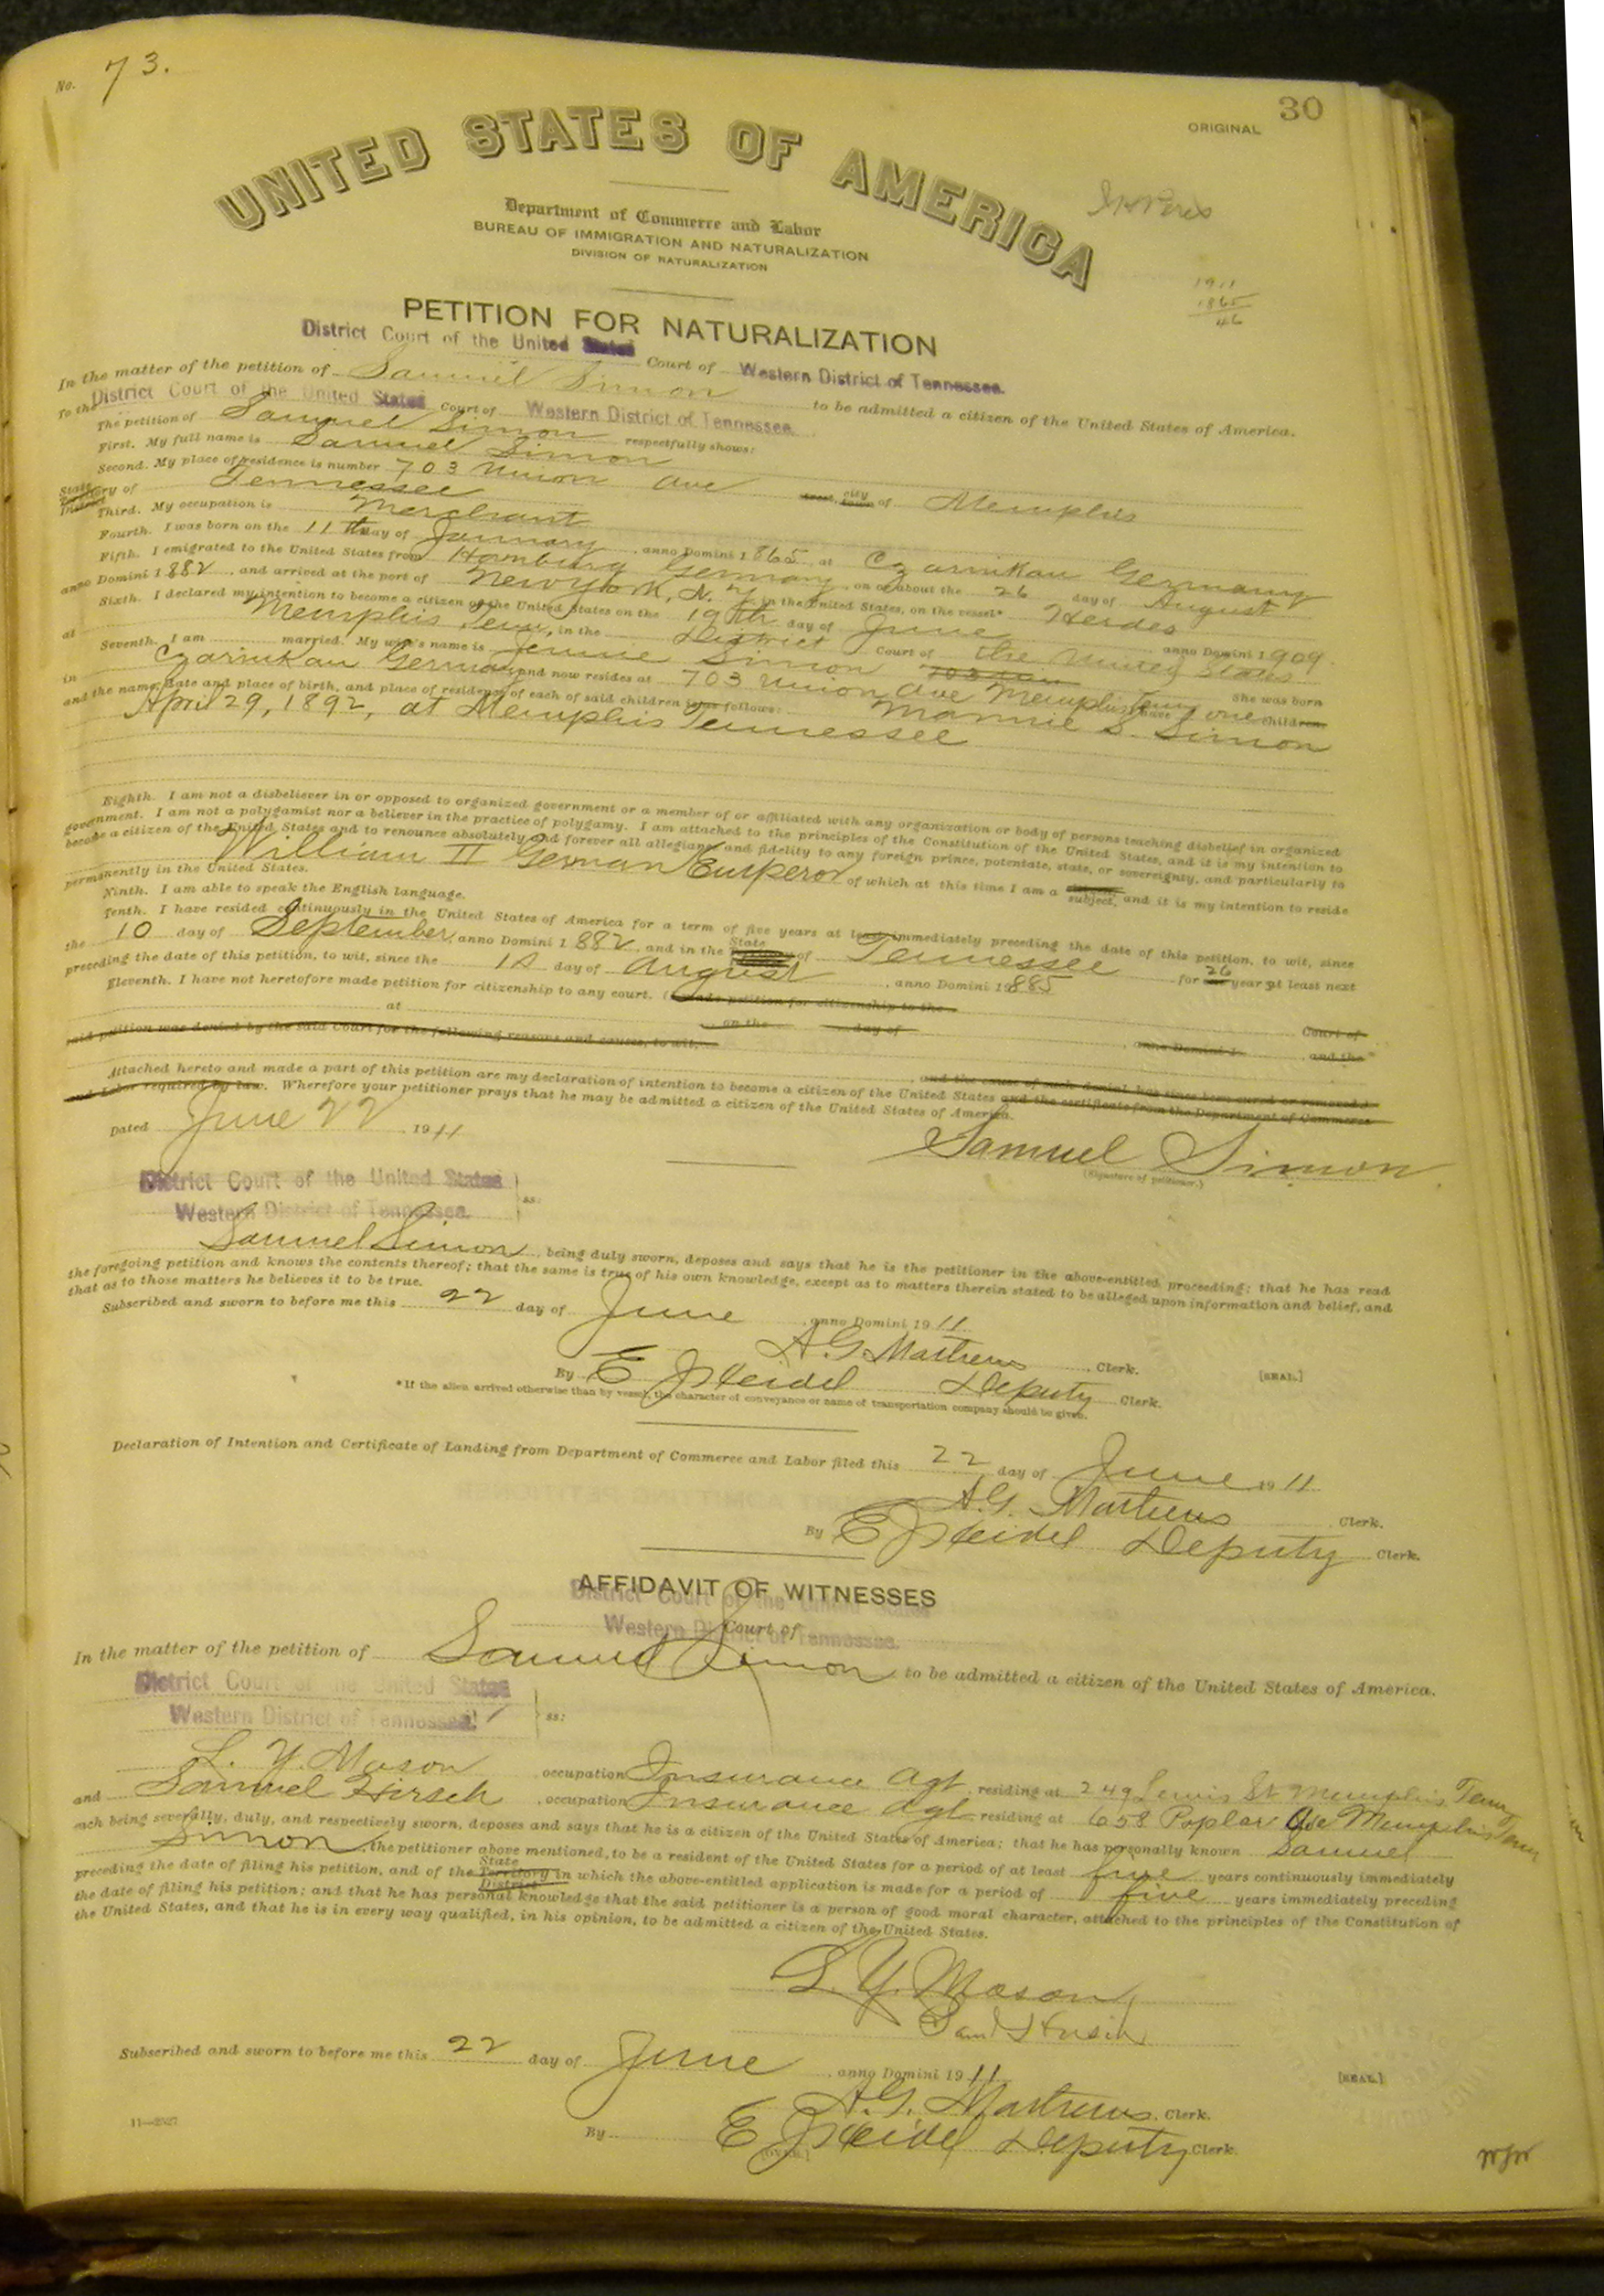 No. 73.
30
ORIGINAL
UNITED STATES OF AMERICA
Department of Commerce and Labor
BUREAU OF IMMIGRATION AND NATURALIZATION
DIVISION OF NATURALIZATION
1911
1865
46
PETITION FOR NATURALIZATION
District Court of the United States Court of Western District of Tennessee.
In the matter of the petition of Samuel Simon to be admitted a citizen of the United States of America.
To the District Court of the United States Court of Western District of Tennessee.
The petition of Samuel Simon respectfully shows:
First. My full name is Samuel Simon
Second. My place of residence is number 703 Union Ave street, city town of Memphis
State Territory District of Tennessee
Third. My occupation is Merchant
Fourth. I was born on the 11th day of January, anno Domini 1865, at Czarnikau Germany
Fifth. I emigrated to the United States from Hamburg Germany, on or about the 26 day of August
anno Domini 1882, and arrived at the port of New York, N. Y. in the United States, on the vessel* Herdes
Sixth. I declared my intention to become a citizen of the United States on the 19th day of June anno Domini 1909.
at Memphis Tenn, in the District Court of the United States
Seventh. I am married. My wife's name is Jennie Simon She was born
in Czarnikau Germany and now resides at 703 Union Ave Memphis Tenn I have one children
and the name, date and place of birth, and place of residence of each of said children is as follows: Mannie S. Simon
April 29, 1892, at Memphis Tennessee
Eighth. I am not a disbeliever in or opposed to organized government or a member of or affiliated with any organization or body of persons teaching disbelief in organized
government. I am not a polygamist nor a believer in the practice of polygamy. I am attached to the principles of the Constitution of the United States, and it is my intention to
become a citizen of the United States and to renounce absolutely and forever all allegiance and fidelity to any foreign prince, potentate, state, or sovereignty, and particularly to
William II German Emperor of which at this time I am a subject, and it is my intention to reside
permanently in the United States.
Ninth. I am able to speak the English language.
Tenth. I have resided continuously in the United States of America for a term of five years at least immediately preceding the date of this petition, to wit, since
the 10 day of September, anno Domini 1882 and in the State of Tennessee for 26 year at least next
preceding the date of this petition, to wit, since the 10 day of August, anno Domini 1885
Eleventh. I have not heretofore made petition for citizenship to any court. (I made petition for citizenship to the
Court of at on the day of anno Domini 1 and the
said petition was denied by the said Court for the following reasons and causes, to wit,
and the cause of such denial has since been cured or removed.)
Attached hereto and made a part of this petition are my declaration of intention to become a citizen of the United States and the certificate from the Department of Commerce
and Labor required by law. Wherefore your petitioner prays that he may be admitted a citizen of the United States of America.
Dated June 22 1911
Samuel Simon
(Signature of petitioner.)
District Court of the United States
Western District of Tennessee. ss:
Samuel Simon, being duly sworn, deposes and says that he is the petitioner in the above-entitled proceeding; that he has read
the foregoing petition and knows the contents thereof; that the same is true of his own knowledge, except as to matters therein stated to be alleged upon information and belief, and
that as to those matters he believes it to be true.
Subscribed and sworn to before me this 22 day of June, anno Domini 1911
A.G. Matthews Clerk.
[SEAL.]
By E J Heidel Deputy Clerk.
*If the alien arrived otherwise than by vessel, the character of conveyance or name of transportation company should be given.
Declaration of Intention and Certificate of Landing from Department of Commerce and Labor filed this 22 day of June 1911
A.G. Matthews Clerk.
By E J Heidel Deputy Clerk.
AFFIDAVIT OF WITNESSES
District Court of the United States
Western District of Tennessee. Court of
In the matter of the petition of Samuel Simon to be admitted a citizen of the United States of America.
District Court of the United States
Western District of Tennessee. ss:
L. Y. Mason, occupation Insurance Agt, residing at 249 Lewis St Memphis Tenn
and Samuel Hirsch, occupation Insurance Agt residing at 658 Poplar Ave Memphis Tenn
each being severally, duly, and respectively sworn, deposes and says that he is a citizen of the United States of America; that he has personally known Samuel
Simon, the petitioner above mentioned, to be a resident of the United States for a period of at least five years continuously immediately
preceding the date of filing his petition, and of the State Territory District in which the above-entitled application is made for a period of five years immediately preceding
the date of filing his petition; and that he has personal knowledge that the said petitioner is a person of good moral character, attached to the principles of the Constitution of
the United States, and that he is in every way qualified, in his opinion, to be admitted a citizen of the United States.
L. Y. Mason
Saml Hirsch
Subscribed and sworn to before me this 22 day of June, anno Domini 1911
[SEAL.]
A.G. Matthews, Clerk.
11—2527
By E J Heidel Deputy Clerk.
[OVER.]
WJW